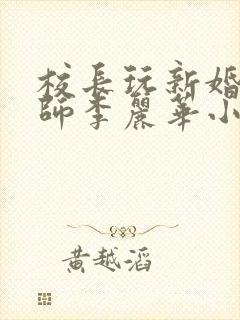 校長玩新婚
師李麗華小
黃越滔